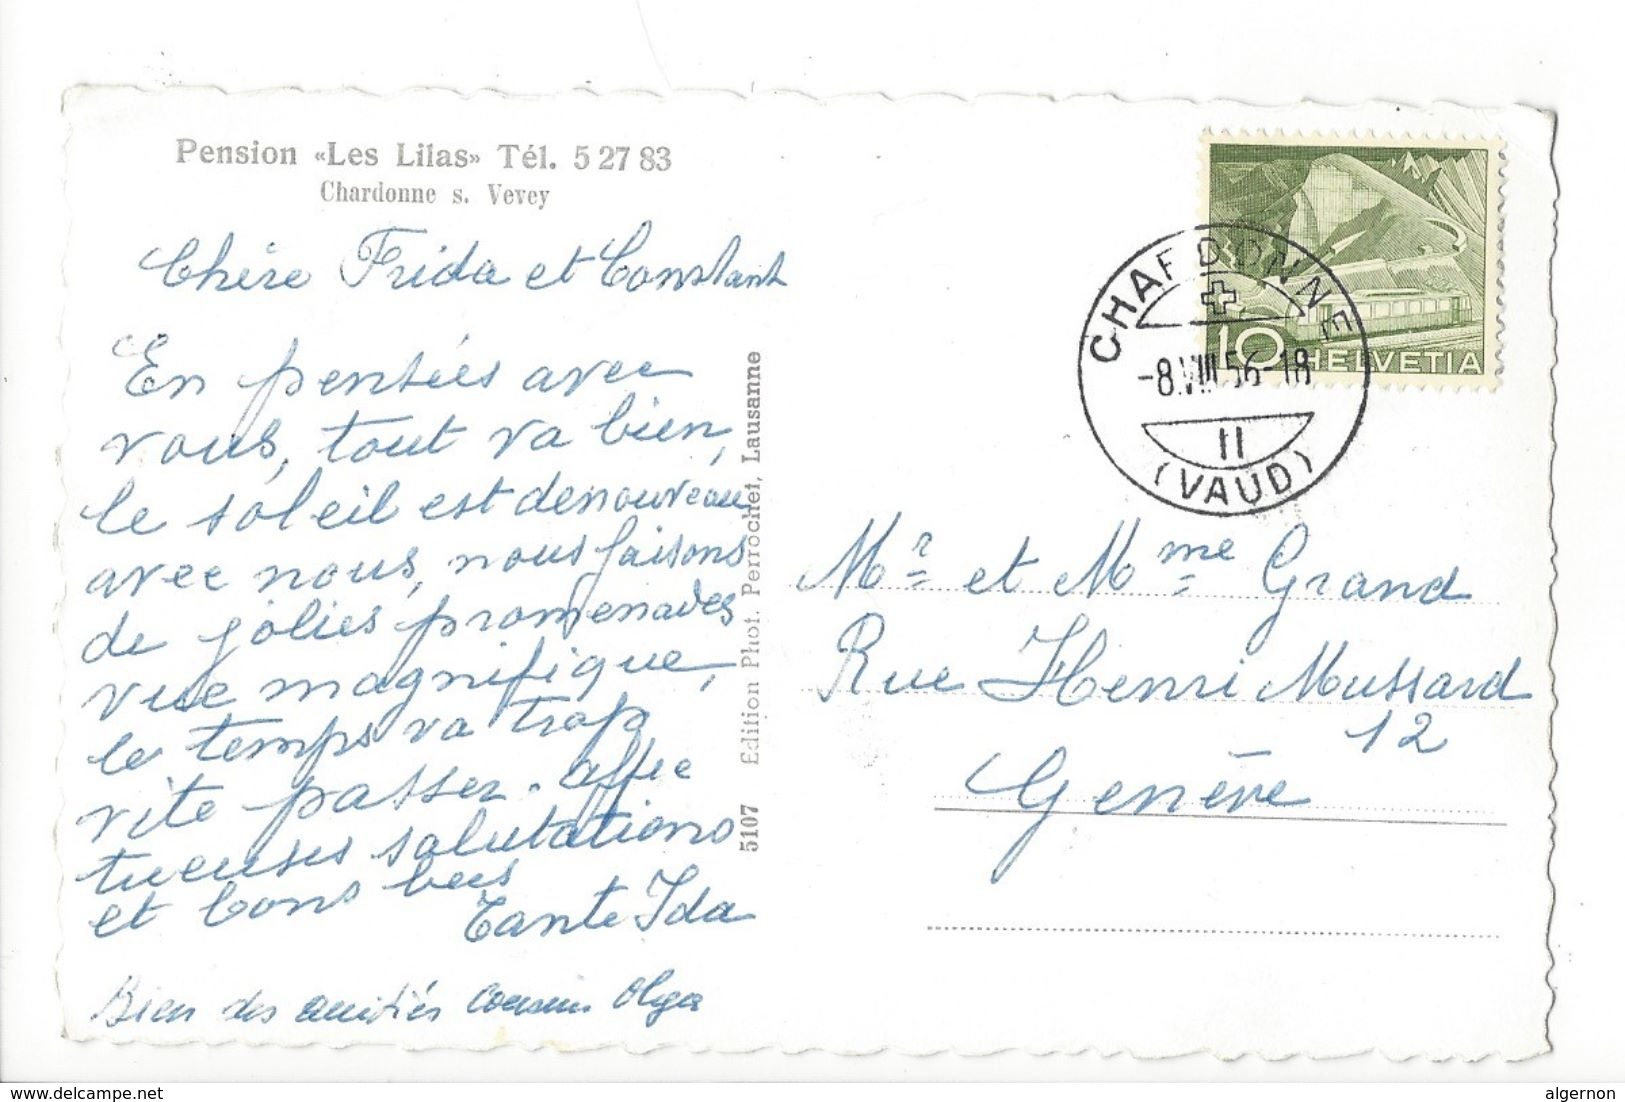 Pension «Les Lilas» Tél. 5 27 83
Chardonne s. Vevey
Chère Frida et Constant
En pensées avec
vous, tout va bien,
le soleil est de nouveau
avec nous, nous faisons
de jolies promenades
vue magnifique,
le temps va trop
vite passer. Affec
tueuses salutations
et bons becs
Tante Ida
Bien des amitiés cousine Olga
5107 Edition Phot. Perrochet, Lausanne
10 HELVETIA
CHARDONNE
-8.VIII.56-18
II
(VAUD)
Mr et Mme Grand
Rue Henri Mussard
12
Genève
www.delcampe.net
algernon